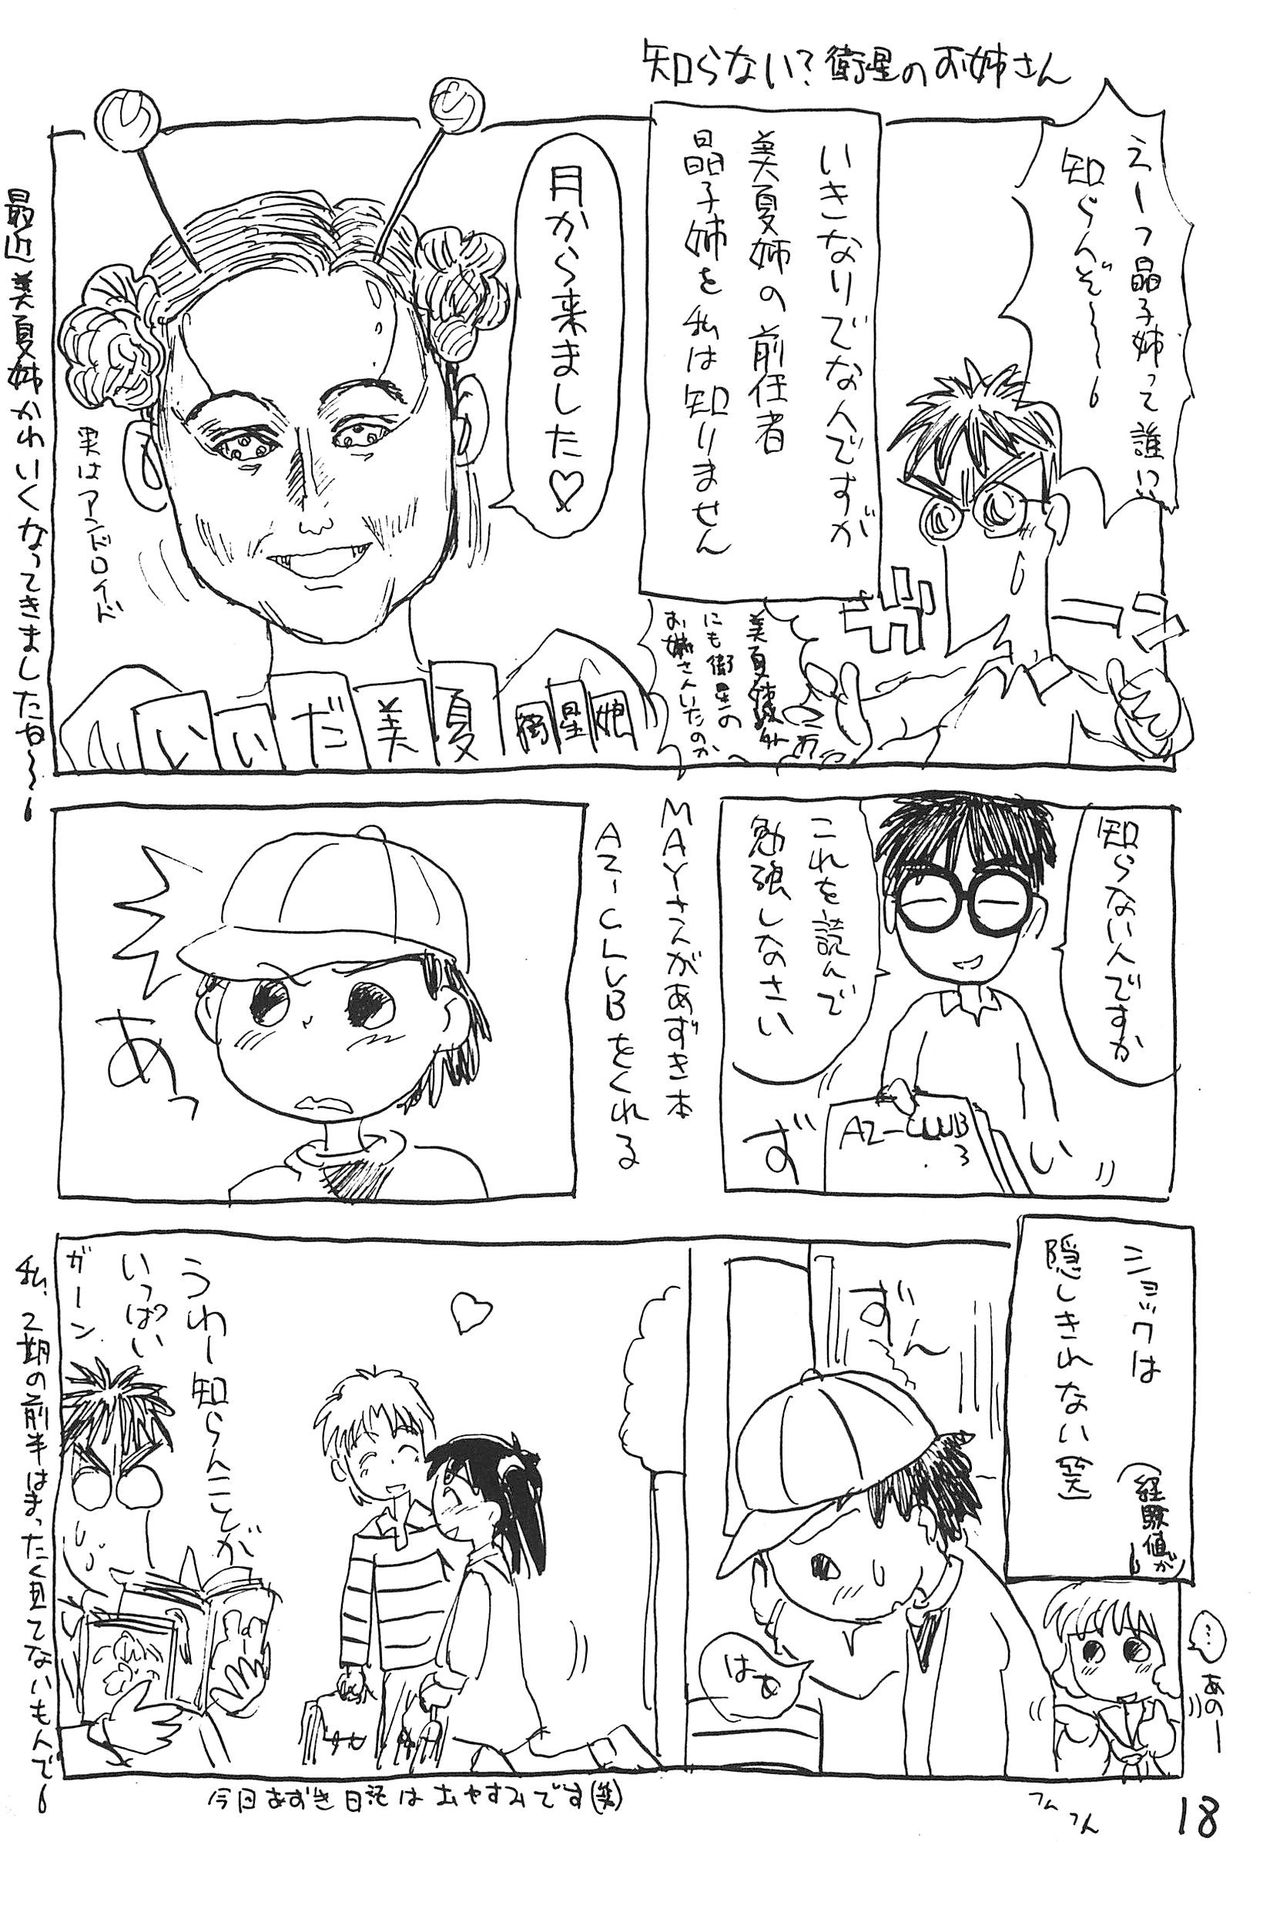 知らない?衛星のお姉さん
えーっ晶子姉って誰い
知らんぞ〜〜
ガーン
いきなりでなんですが
美夏姉の前任者
晶子姉を私は知りません
美夏姉以外
にも衛星の
お姉さんいたのか
月から来ました♡
実はアンドロイド
いいだ美夏
衛星娘
最近美夏姉かわいくなってきましたな〜〜
知らないんですか
これを読んで
勉強しなさい
ずい
AZ-CLUB
3
MAYさんがあずき本
AZ-CLUBをくれる
あっ
ショックは
隠しきれない(笑)
(経験値が)
ずん
はぁ
…
あのー
フムフん
うわー知らんことが
いっぱい
ガーン
私、2期の前半はまったく見てないもんで
今日あずき日記はおやすみです(笑)
18